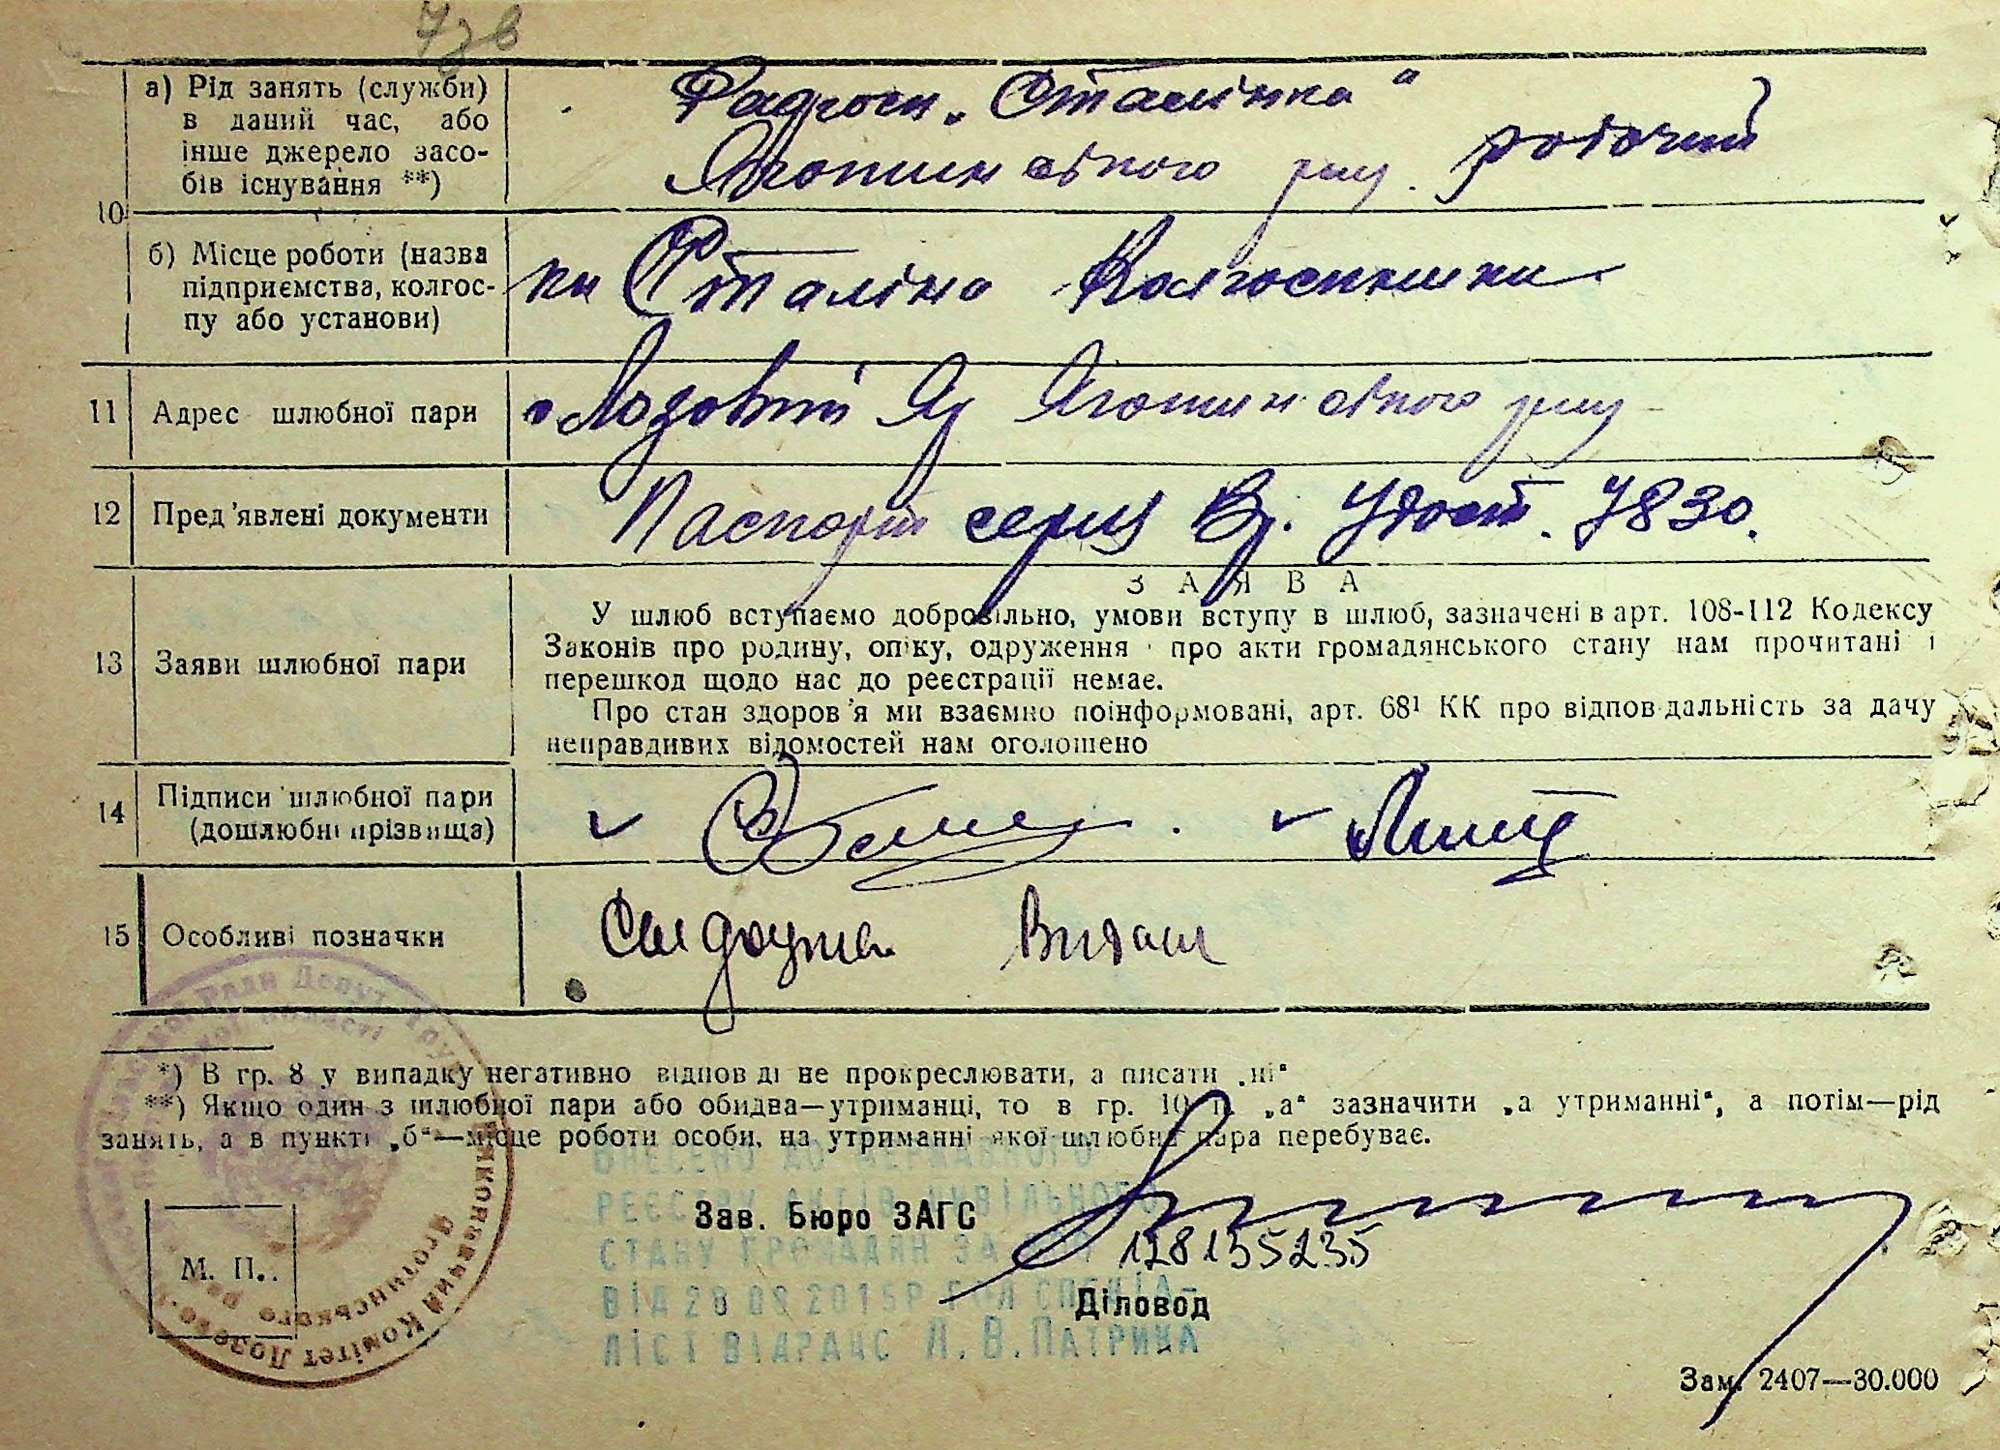 7зв
10
а) Рід занять (служби)
в даний час, або
інше джерело засо-
бів існування **)
Радгосп „Сталінка“
Яготинського р-ну. робочий
б) Місце роботи (назва
підприємства, колгос-
пу або установи)
Сталіна Колгоспники
11 Адрес шлюбної пари
с Лозовий Яр Яготинського р-ну
12 Пред'явлені документи
Паспорт серия Удост. 7830.
13 Заяви шлюбної пари
ЗАЯВА
У шлюб вступаємо добровільно, умови вступу в шлюб, зазначені в арт. 108-112 Кодексу
Законів про родину, опіку, одруження і про акти громадянського стану нам прочитані і
перешкод щодо нас до реєстрації немає.
Про стан здоров'я ми взаємно поінформовані, арт. 68¹ КК про відповідальність за дачу
неправдивих відомостей нам оголошено
14 Підписи шлюбної пари
(дошлюбні прізвища)
15 Особливі позначки
*) В гр. 8 у випадку негативно відповіді не прокреслювати, а писати „ні“
**) Якщо один з шлюбної пари або обидва—утриманці, то в гр. 10 п. „а“ зазначити „а утриманні“, а потім—рід
занять, а в пункті „б“—місце роботи особи, на утриманні якої шлюбна пара перебуває.
ВНЕСЕНО ДО ДЕРЖАВНОГО
РЕЄСТРУ АКТІВ ЦИВІЛЬНОГО
СТАНУ ГРОМАДЯН ЗА
128135235
ВІД 28 09 2015Р СПЕЦІА-
ЛІСТ ВІДРАЦС Л. В. ПАТРИКА
Зав. Бюро ЗАГС
Діловод
М. П.
Виконавчий Комітет
Яготинського
Зам. 2407—30.000